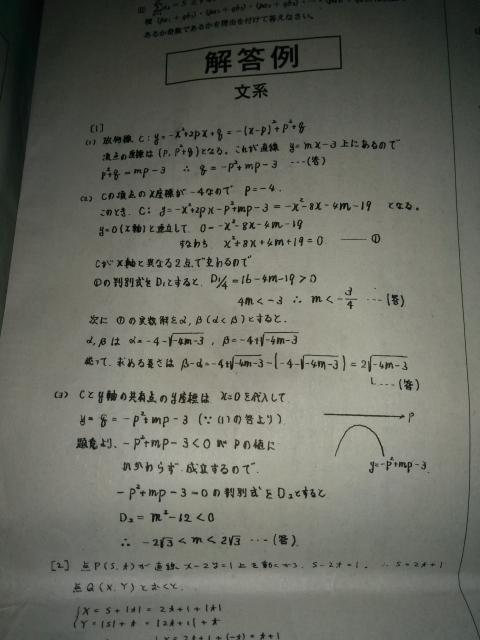 (ii)
あるか奇数であるかを理由を付けて答えなさい。
解答例
文系
[1]
(1) 放物線 C: y=-x²+2px+q=-(x-p)²+p²+q
頂点の座標は (p, p²+q)となる。これが直線 y=mx-3 上にあるので
p²+q=mp-3 ∴ q=-p²+mp-3 …(答)
(2) Cの頂点のx座標が-4なので p=-4.
このとき. C: y=-x²+2px-p²+mp-3=-x²-8x-4m-19 となる。
y=0(x軸)と連立して. 0=-x²-8x-4m-19
すなわち x²+8x+4m+19=0. ―― ①
Cがx軸と異なる2点で交わるので
①の判別式をD₁とすると. D₁/4=16-4m-19>0
4m<-3 ∴ m<-3/4 …(答)
次に ①の実数解をα, β(α<β)とすると.
α, β は α=-4-√-4m-3 , β=-4+√-4m-3
従って. 求める長さは β-α=-4+√-4m-3-(-4-√-4m-3)=2√-4m-3
…(答)
(3) Cとy軸の共有点のy座標は x=0を代入して
y=q=-p²+mp-3 (∵(1)の答より)
題意より、-p²+mp-3<0 が Pの値に
かかわらず. 成立するので.
p
y=-p²+mp-3
-p²+mp-3=0の判別式をD₂とすると
D₂=m²-12<0
∴ -2√3<m<2√3 …(答)
[2] 点P(s,t)が直線x-2y=1上を動くから. s-2t=1. ∴ s=2t+1
点Q(X,Y)とおくと.
X=s+|t|=2t+1+|t|
Y=|s|+t=|2t+1|+t
X=2t+1+(-t)=t+1